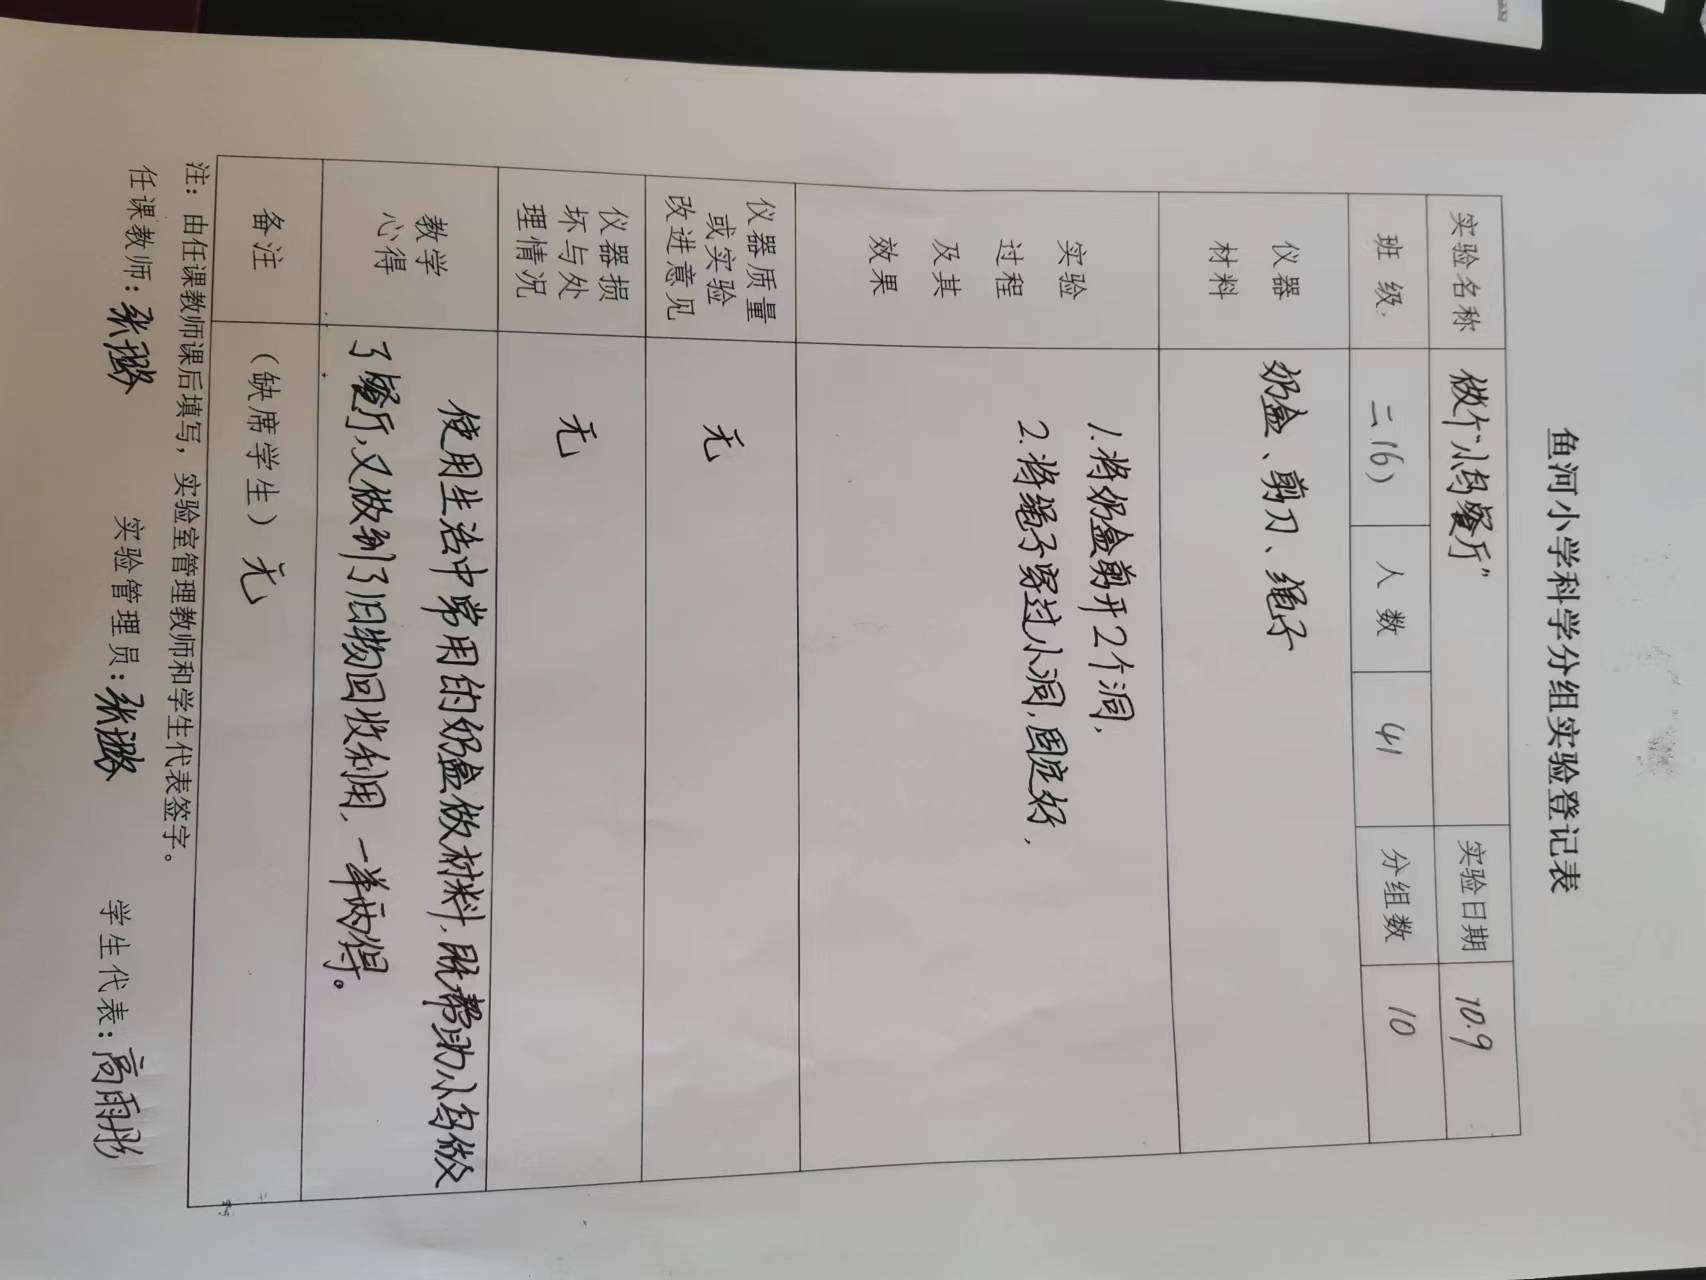 鱼河小学科学分组实验登记表
实验名称 做个"小鸟餐厅" 实验日期 10.9
班 级 二(6) 人 数 41 分组数 10
仪器
材料
奶盒、剪刀、绳子
实验
过程
及其
效果
1.将奶盒剪开2个洞,
2.将绳子穿过小洞,固定好.
仪器质量
或实验
改进意见
无
仪器损
坏与处
理情况
无
教学
心得
使用生活中常用的奶盒做材料,既帮助小鸟做
了餐厅,又做到了旧物回收利用,一举两得。
备注 (缺席学生)无
注:由任课教师课后填写,实验室管理教师和学生代表签字。
任课教师:张 实验管理员:张 学生代表:高雨彤